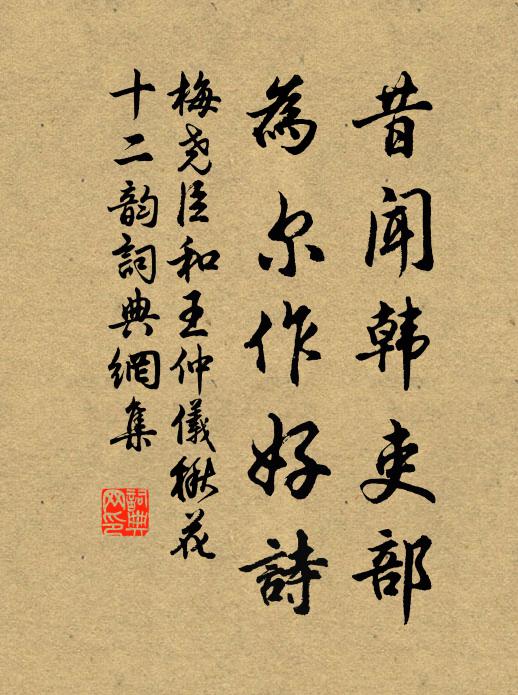 昔闻韩吏部
為尔作好詩
梅尧臣和王仲儀楸花
十二韵詞典網集
詞典网印